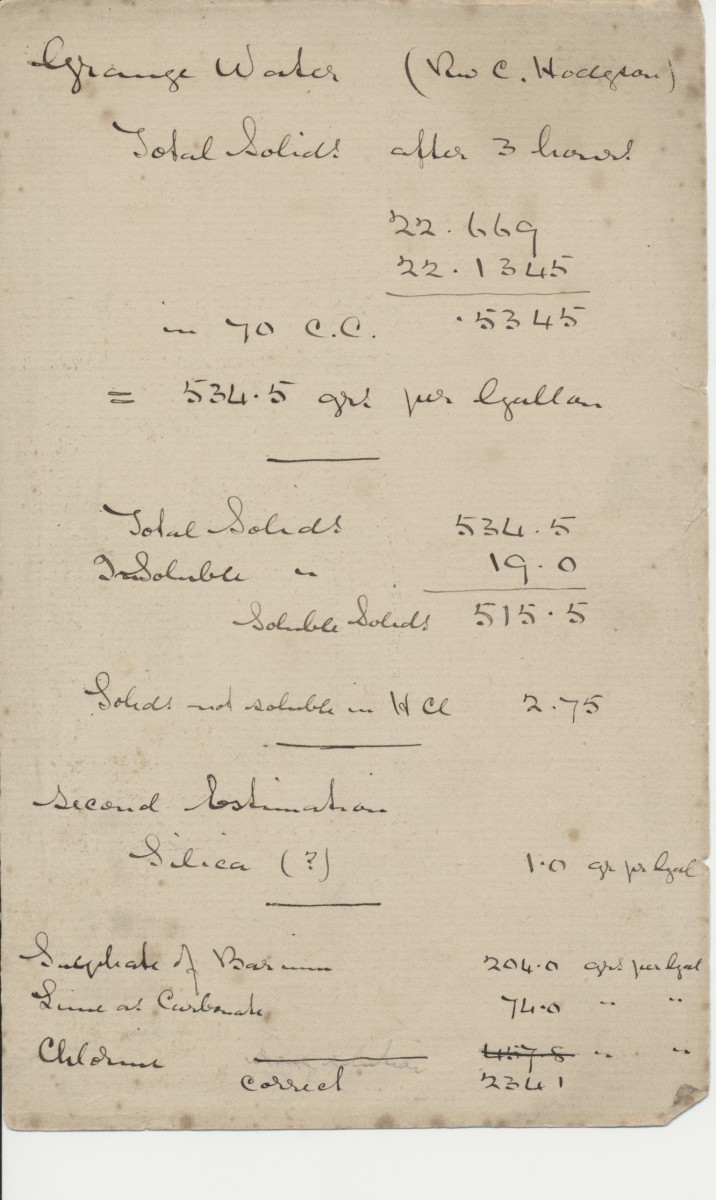 Grange Water (Rev C. Hodgson)
Total Solids after 3 hours
22.669
22.1345
in 70 C.C. .5345
= 534.5 grs per Gallon
Total Solids 534.5
InSoluble " 19.0
Soluble Solids 515.5
Solids not soluble in HCl 2.75
Second Estimation
Silica (?) 1.0 gr pr Gal
Sulphate of Barium 204.0 grs per Gal
Lime as Carbonate 74.0 " "
Chlorine 457.8 " "
correct 2341